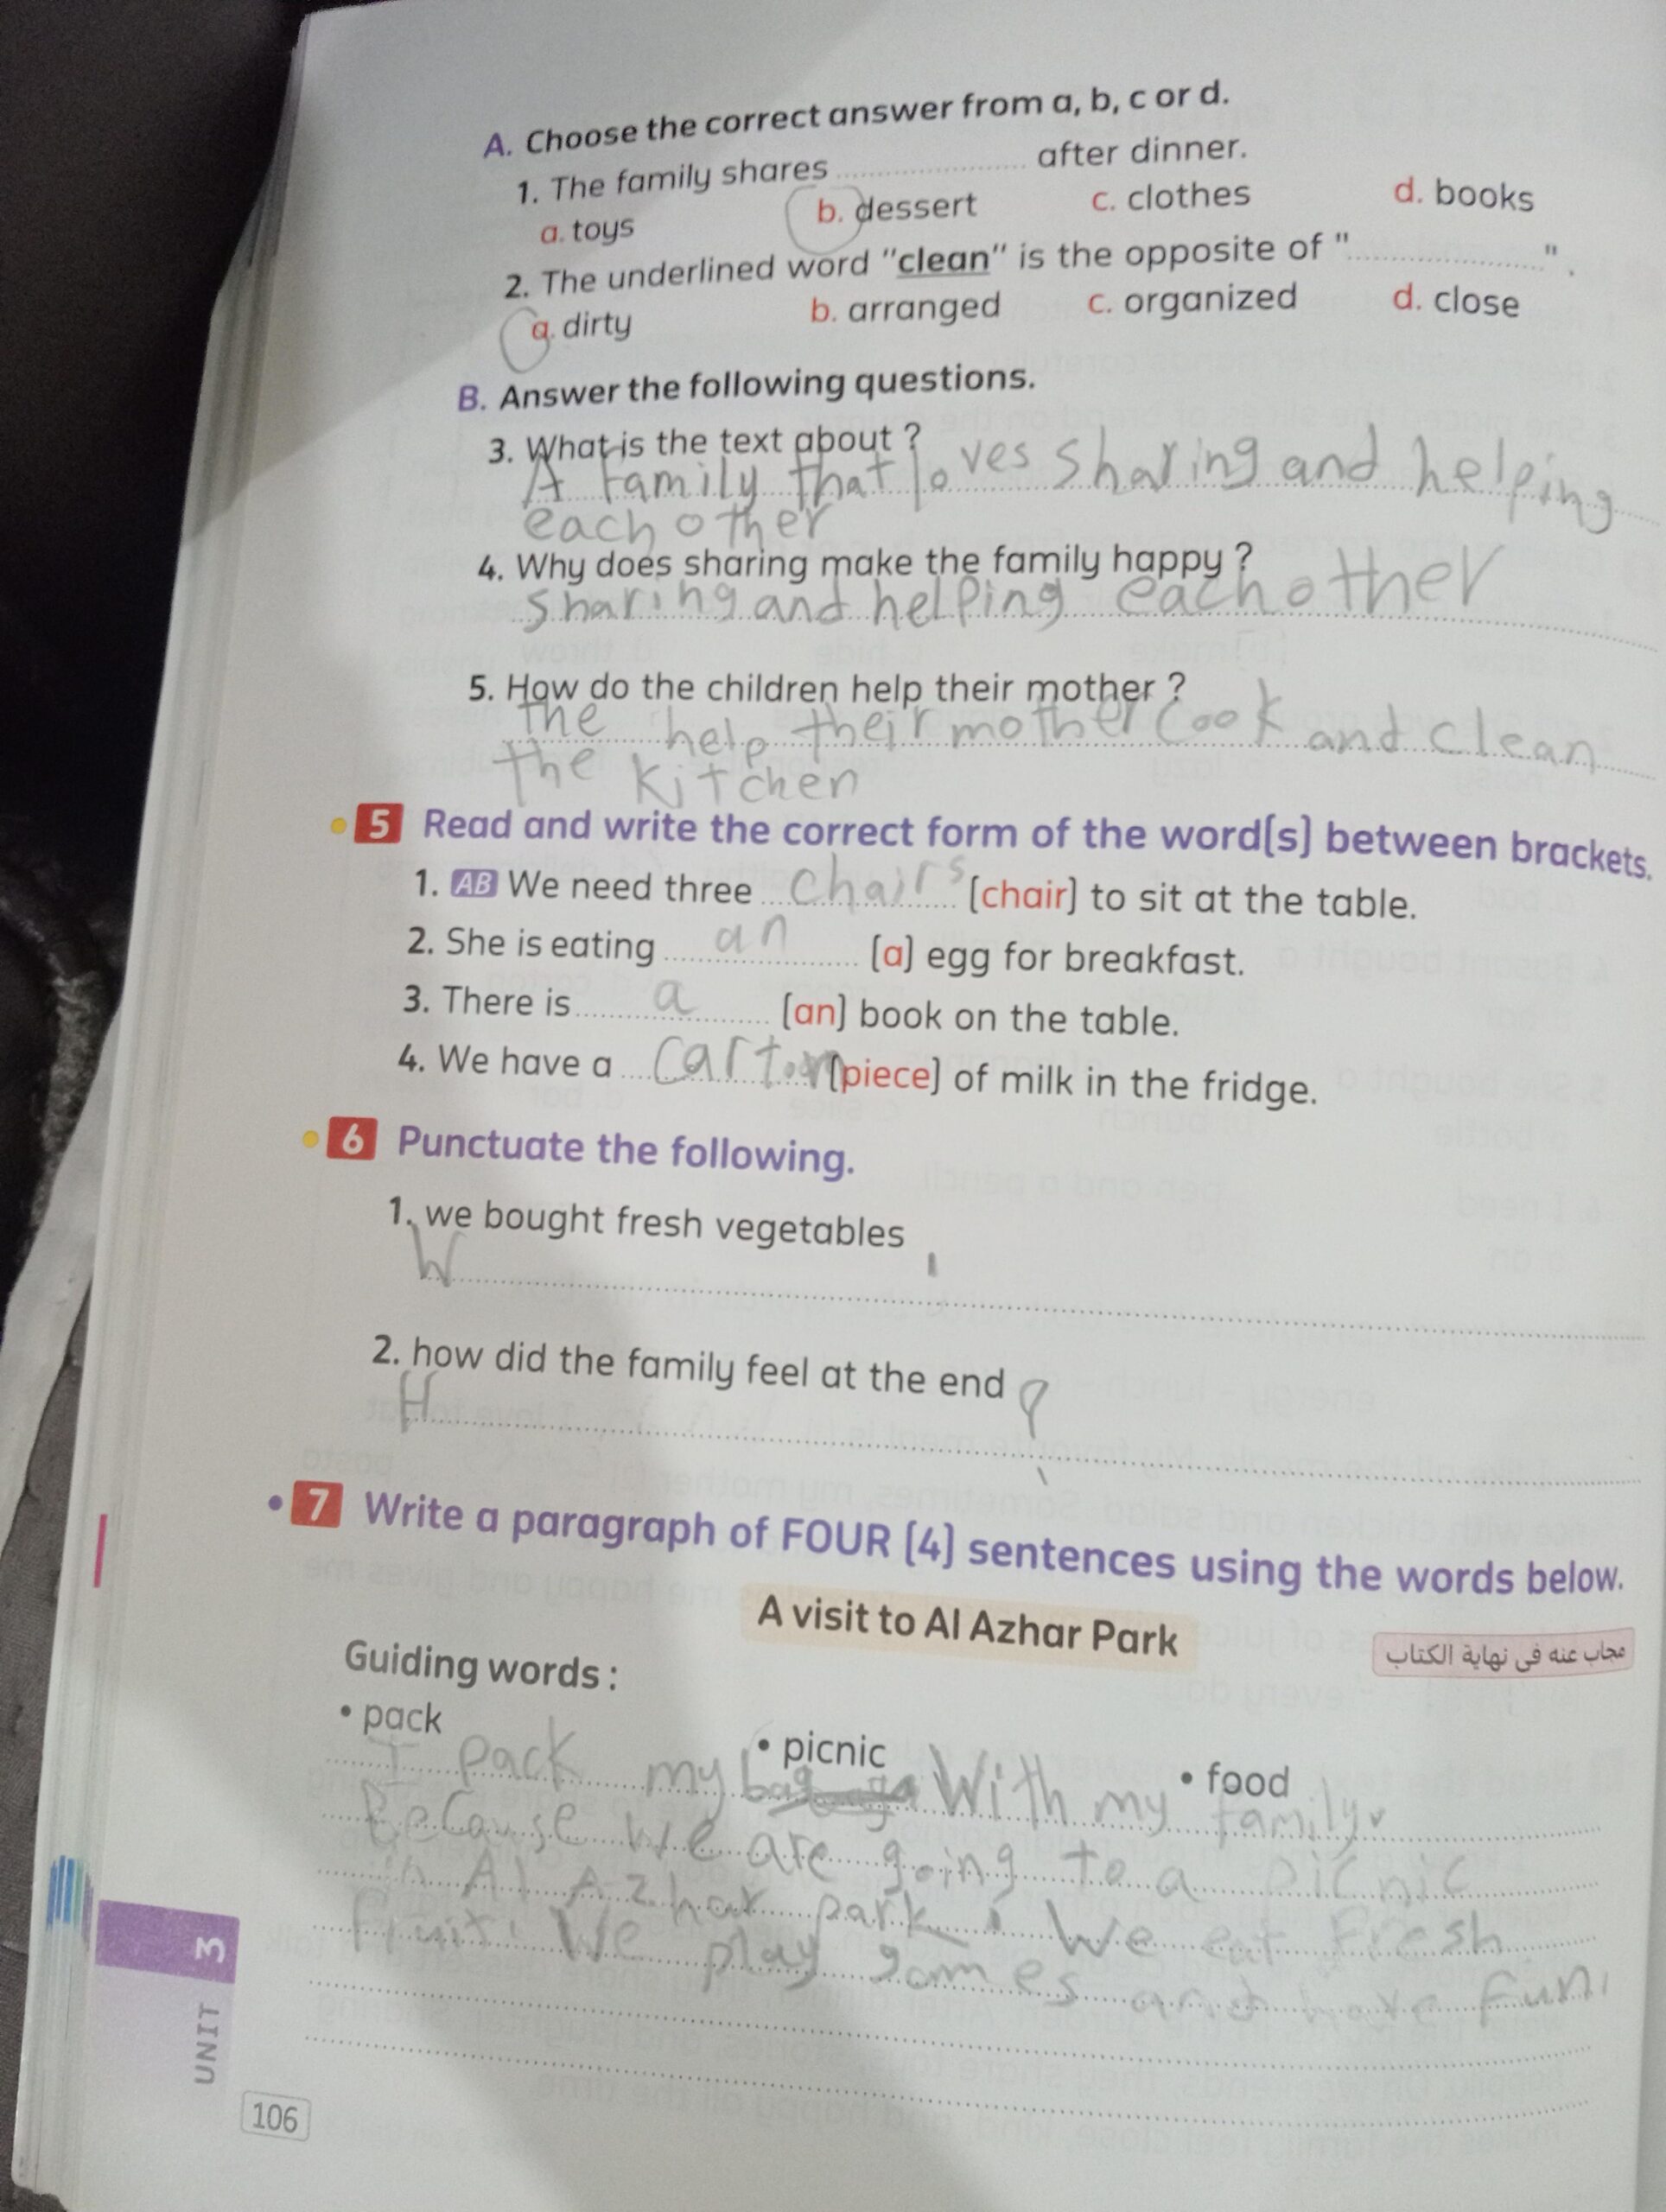 A. Choose the correct answer from a, b, c or d.
1. The family shares .................... after dinner.
a. toys b. dessert c. clothes d. books
2. The underlined word "clean" is the opposite of "....................".
a. dirty b. arranged c. organized d. close
B. Answer the following questions.
3. What is the text about ?
A family that loves sharing and helping
each other
4. Why does sharing make the family happy ?
sharing and helping each other
5. How do the children help their mother ?
the help their mother cook and clean
the kitchen
5 Read and write the correct form of the word(s) between brackets.
1. AB We need three chairs (chair) to sit at the table.
2. She is eating an (a) egg for breakfast.
3. There is a (an) book on the table.
4. We have a carton (piece) of milk in the fridge.
6 Punctuate the following.
1. we bought fresh vegetables
W .
2. how did the family feel at the end
H ?
7 Write a paragraph of FOUR (4) sentences using the words below.
A visit to Al Azhar Park
مجاب عنه فى نهاية الكتاب
Guiding words :
• pack • picnic • food
I pack my bag With my family.
Because we are going to a picnic
in Al Azhar park. We eat Fresh
fruit. We play games and have fun.
UNIT 3
106